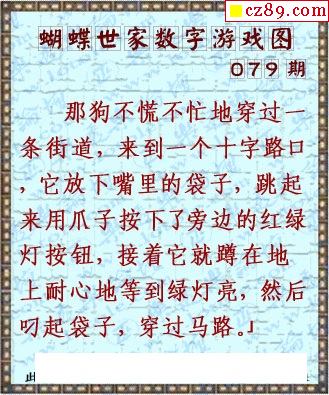 cz89.com
蝴蝶世家数字游戏图
079期
那狗不慌不忙地穿过一
条街道，来到一个十字路口
，它放下嘴里的袋子，跳起
来用爪子按下了旁边的红绿
灯按钮，接着它就蹲在地
上耐心地等到绿灯亮，然后
叼起袋子，穿过马路。」
此